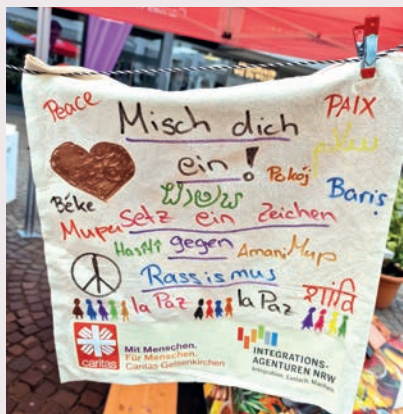 Peace PAIX
Misch dich
ein!
سلام
Pokój
Béke Barış
Mupu Setz ein Zeichen
Hasîtî gegen Amani Mup
Rassismus
शांति
la Paz la Paz
caritas
Mit Menschen.
Für Menschen.
Caritas Gelsenkirchen
INTEGRATIONS-
AGENTUREN NRW
Integration. Einfach. Machen.